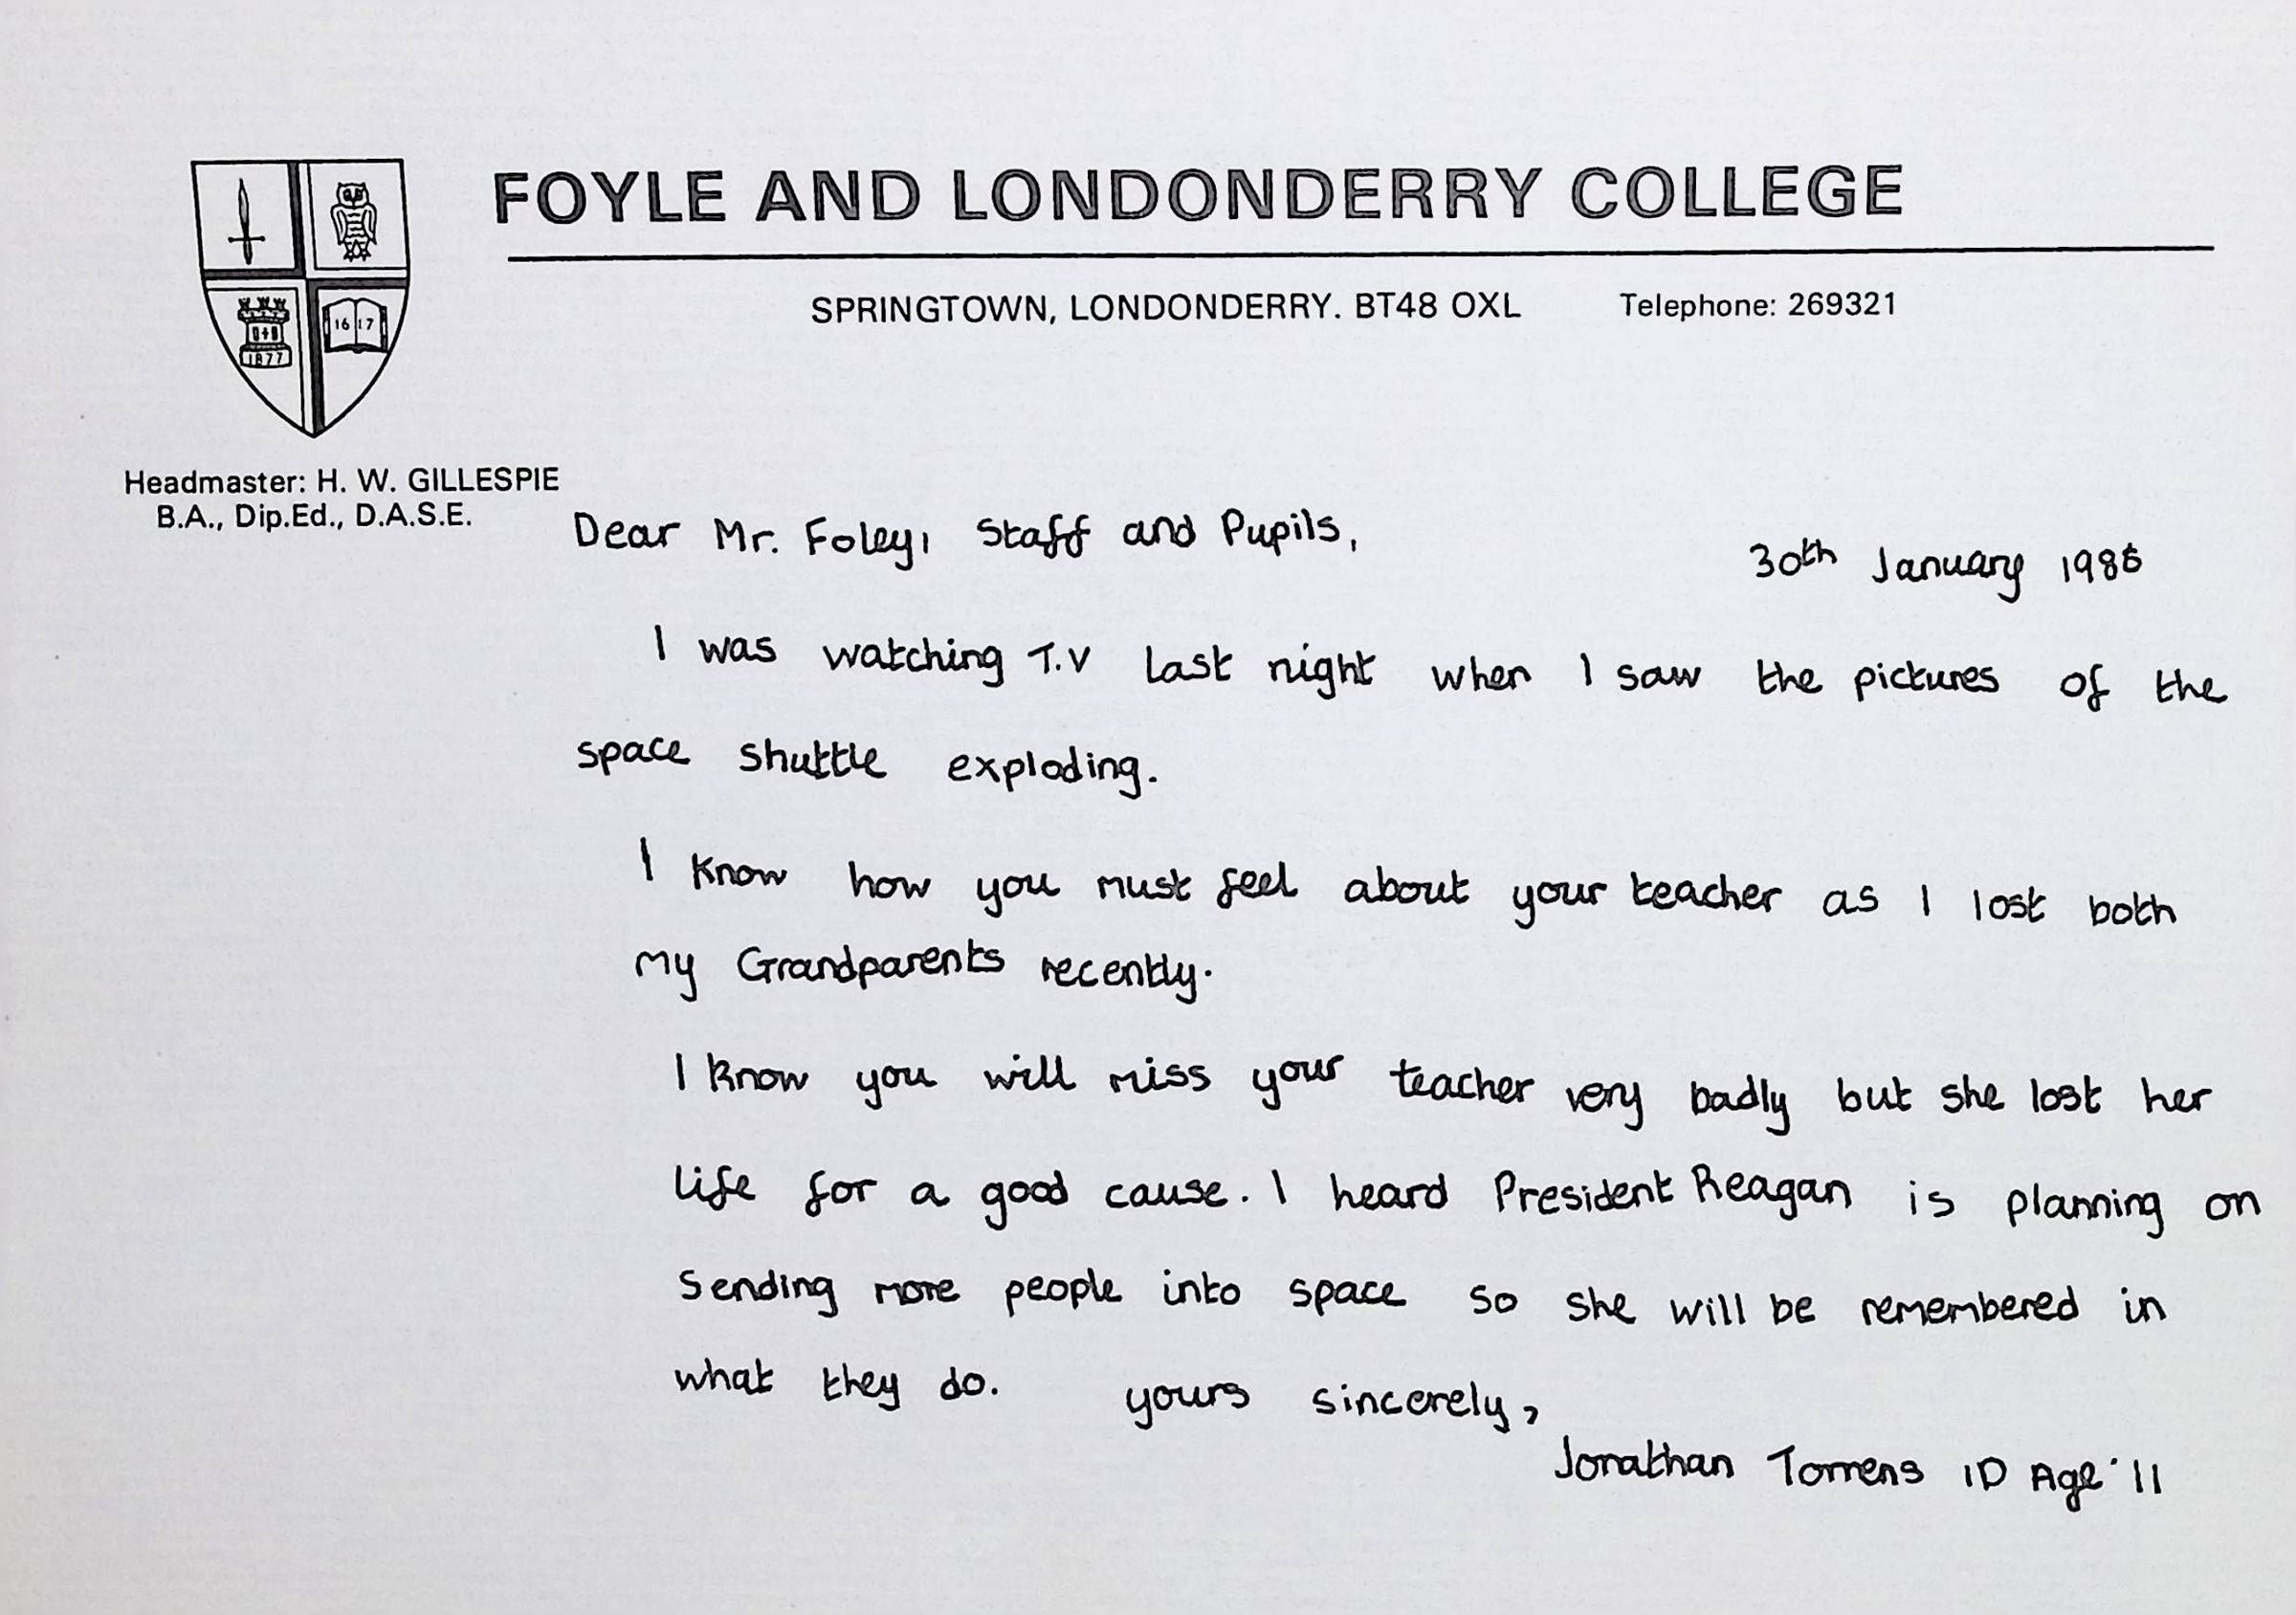 FOYLE AND LONDONDERRY COLLEGE
SPRINGTOWN, LONDONDERRY. BT48 OXL Telephone: 269321
16 17
1877
Headmaster: H. W. GILLESPIE
B.A., Dip.Ed., D.A.S.E.
Dear Mr. Foley, Staff and Pupils,
30th January 1986
I was watching T.V last night when I saw the pictures of the
space shuttle exploding.
I know how you must feel about your teacher as I lost both
my Grandparents recently.
I know you will miss your teacher very badly but she lost her
life for a good cause. I heard President Reagan is planning on
Sending more people into space so she will be remembered in
what they do. yours sincerely,
Jonathan Torrens 1D Age 11